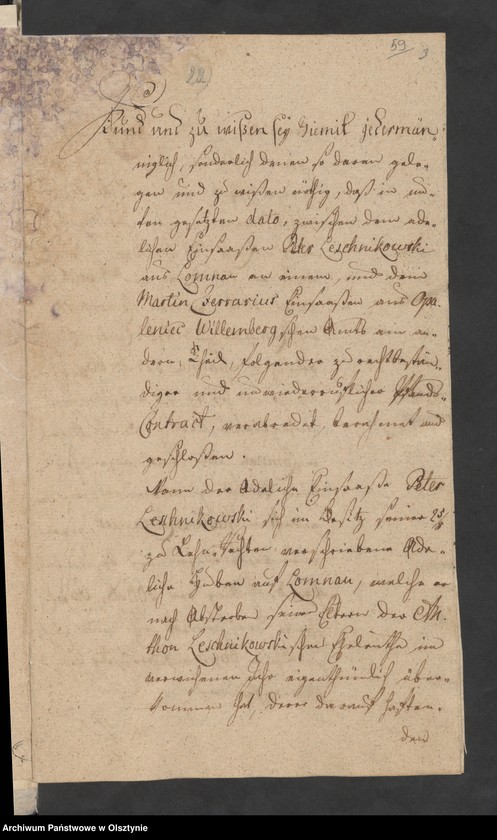 59
3
(22)
Kund und zu wißen sey hiemit jedermän-
niglich, sonderlich denen so daran gele-
gen und zu wißen nöthig, daß in un-
ten gesetzten dato, zwischen dem ade-
lichen Einsaaßen Peter Leschnikowski
aus Lomnau an einem, und dem
Martin Ferrarius Einsaaßen aus Opa-
leniec Willembergschen Amts am an-
dern Theil, folgender zu rechtbestän-
diger und unwiederruflicher Pfands-
Contract, verabredet, berahmet und
geschloßen.
Wann der Adeliche Einsaaße Peter
Leschnikowski sich im Besitz seiner
zu Lehn-Rechten verschriebene Ade-
liche Huben auf Lomnau, welche er
nach Absterben seiner Eltern der An-
thon Leschnikowskischen Eheleuthe im
verwichenen Jahr eigenthümlich über-
kommen hat, derer darauf haften-
den
Archiwum Państwowe w Olsztynie